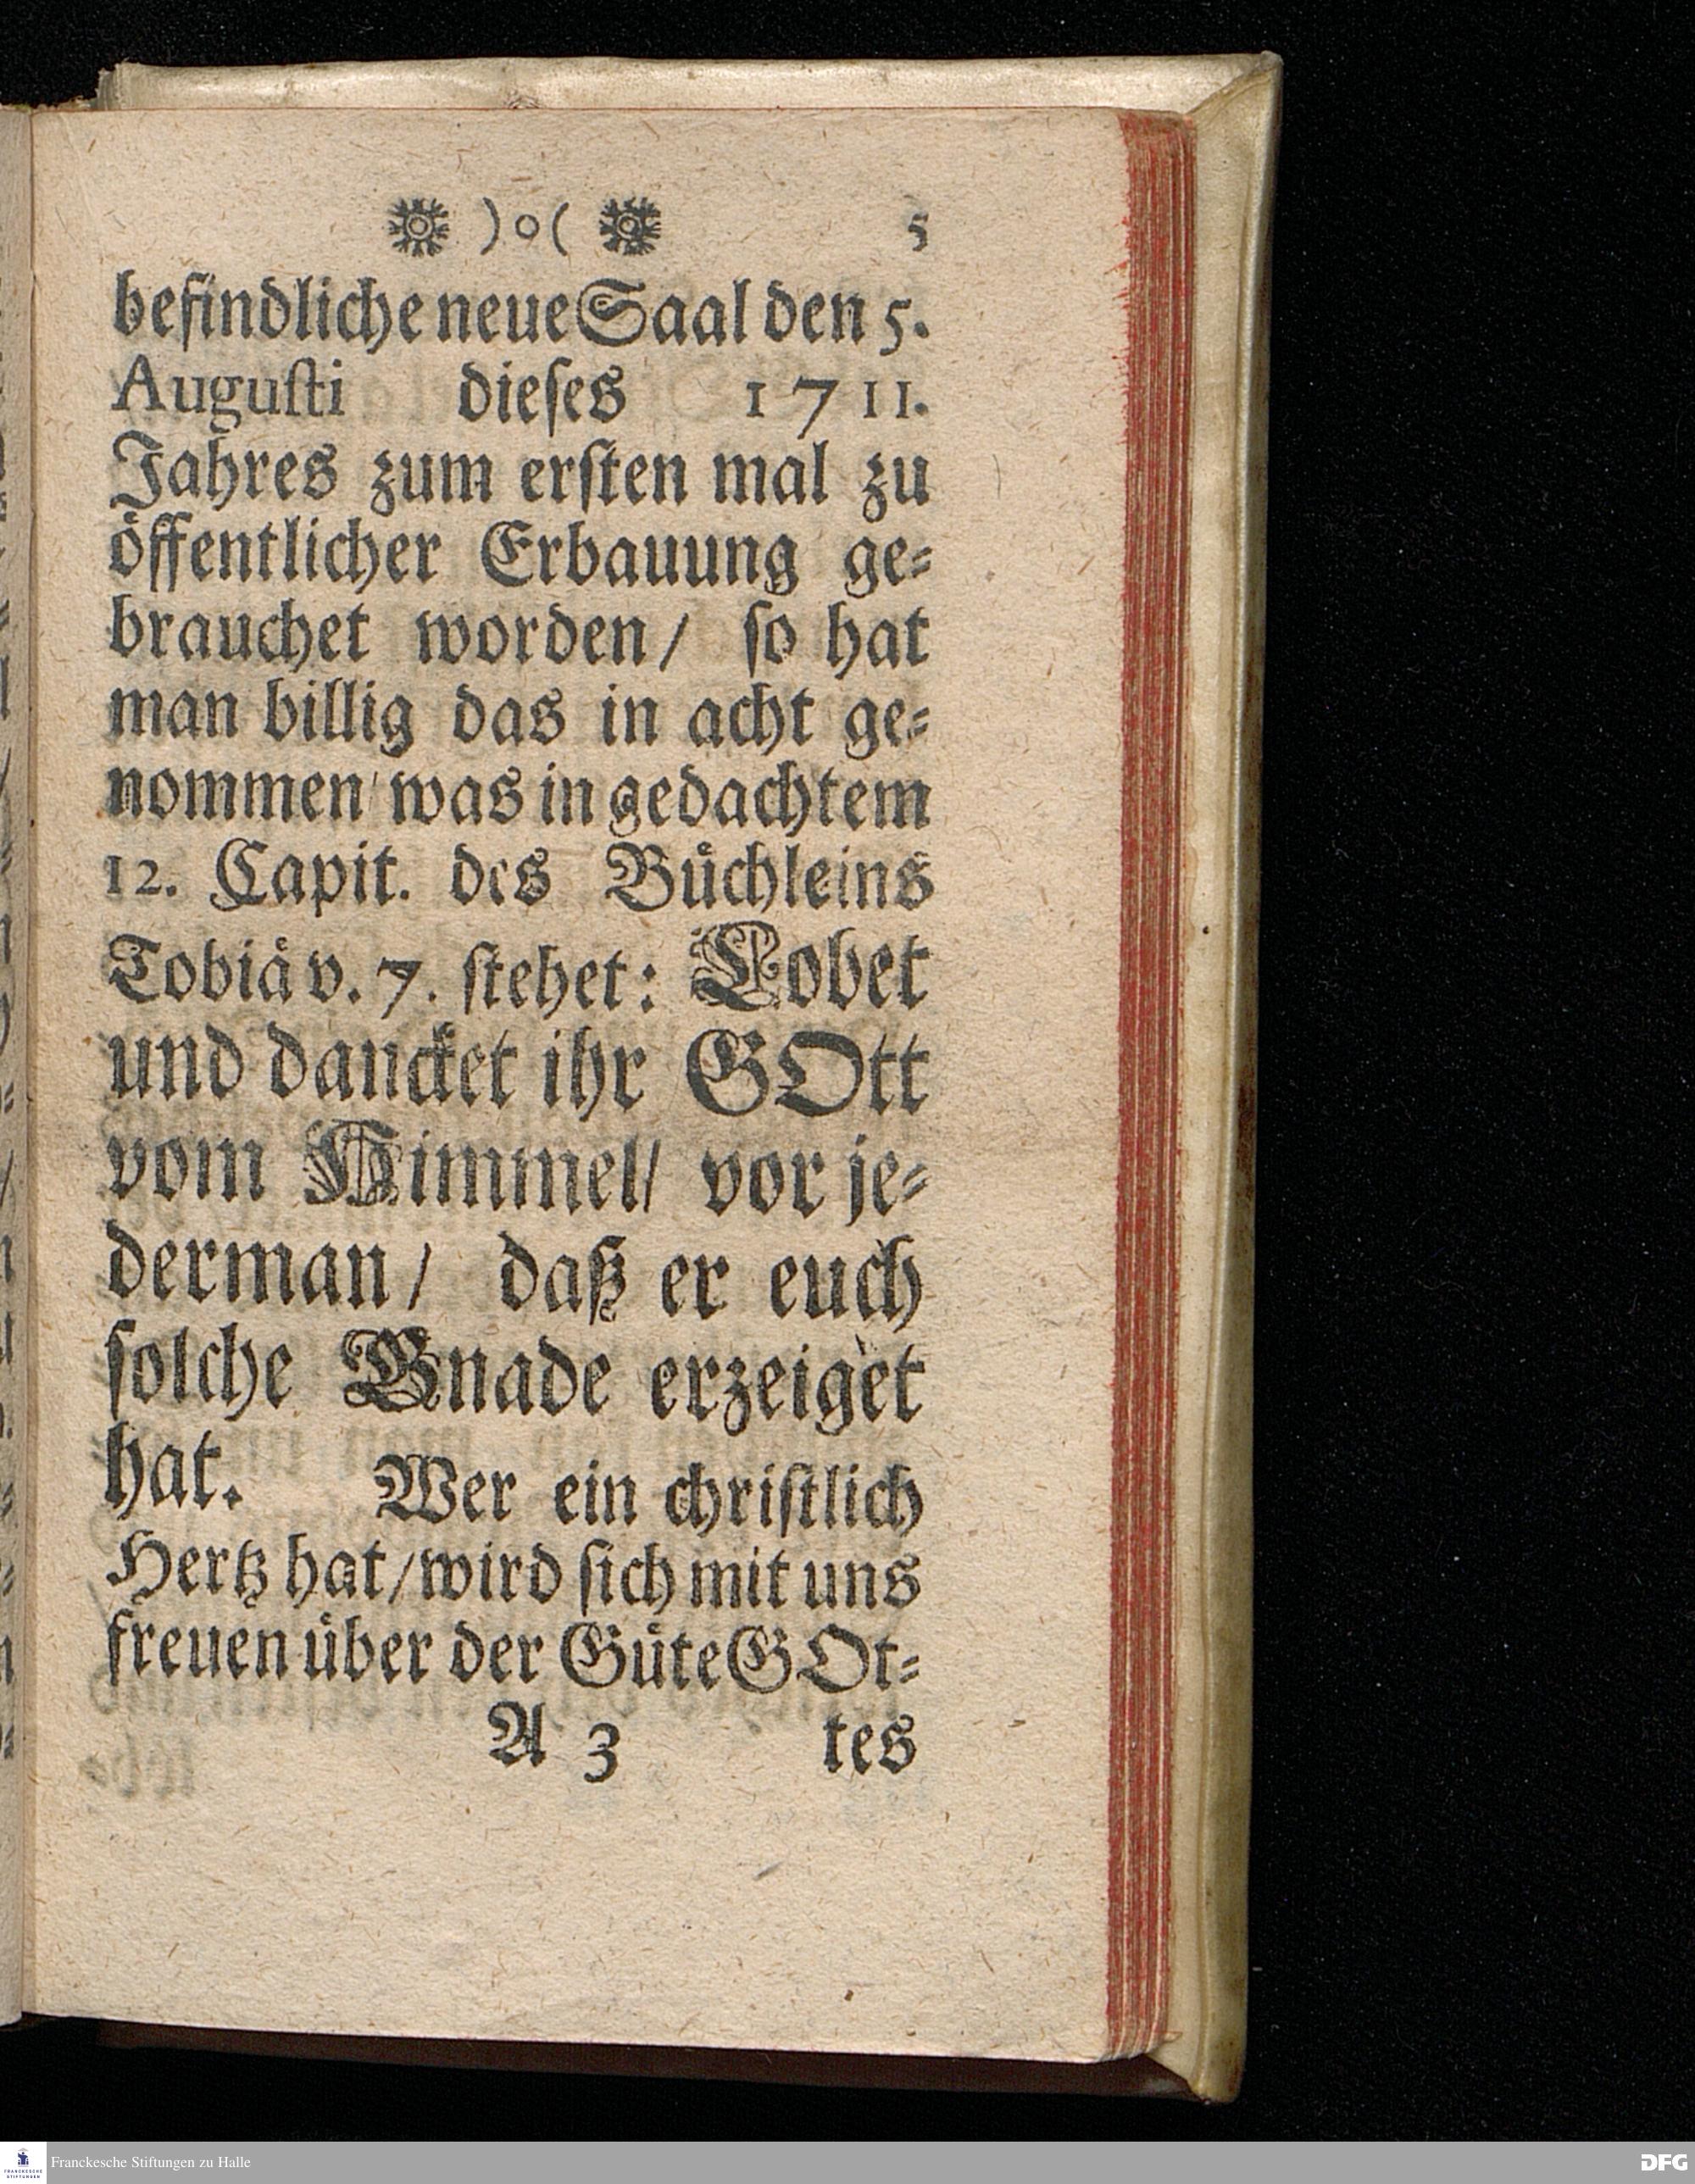 )o( 5
befindliche neue Saal den 5.
Augusti dieses 1711.
Jahres zum ersten mal zu
öffentlicher Erbauung ge-
brauchet worden/ so hat
man billig das in acht ge-
nommen/ was in gedachtem
12. Capit. des Büchleins
Tobiä v. 7. stehet: Lobet
und dancket ihr GOtt
vom Himmel/ vor je-
derman/ daß er euch
solche Gnade erzeiget
hat. Wer ein christlich
Hertz hat/ wird sich mit uns
freuen über der Güte GOt-
A 3 tes
FRANCKESCHE STIFTUNGEN
Franckesche Stiftungen zu Halle
DFG